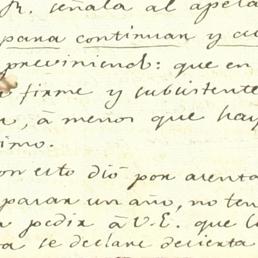 R. señala al apela
para continuar y cu
previniendo: que en
firme y subsistente
á menos que hay
simo.
on esto dió por asenta
pasar un año, no ten
pedir á V.E. que l
a se declare desierta